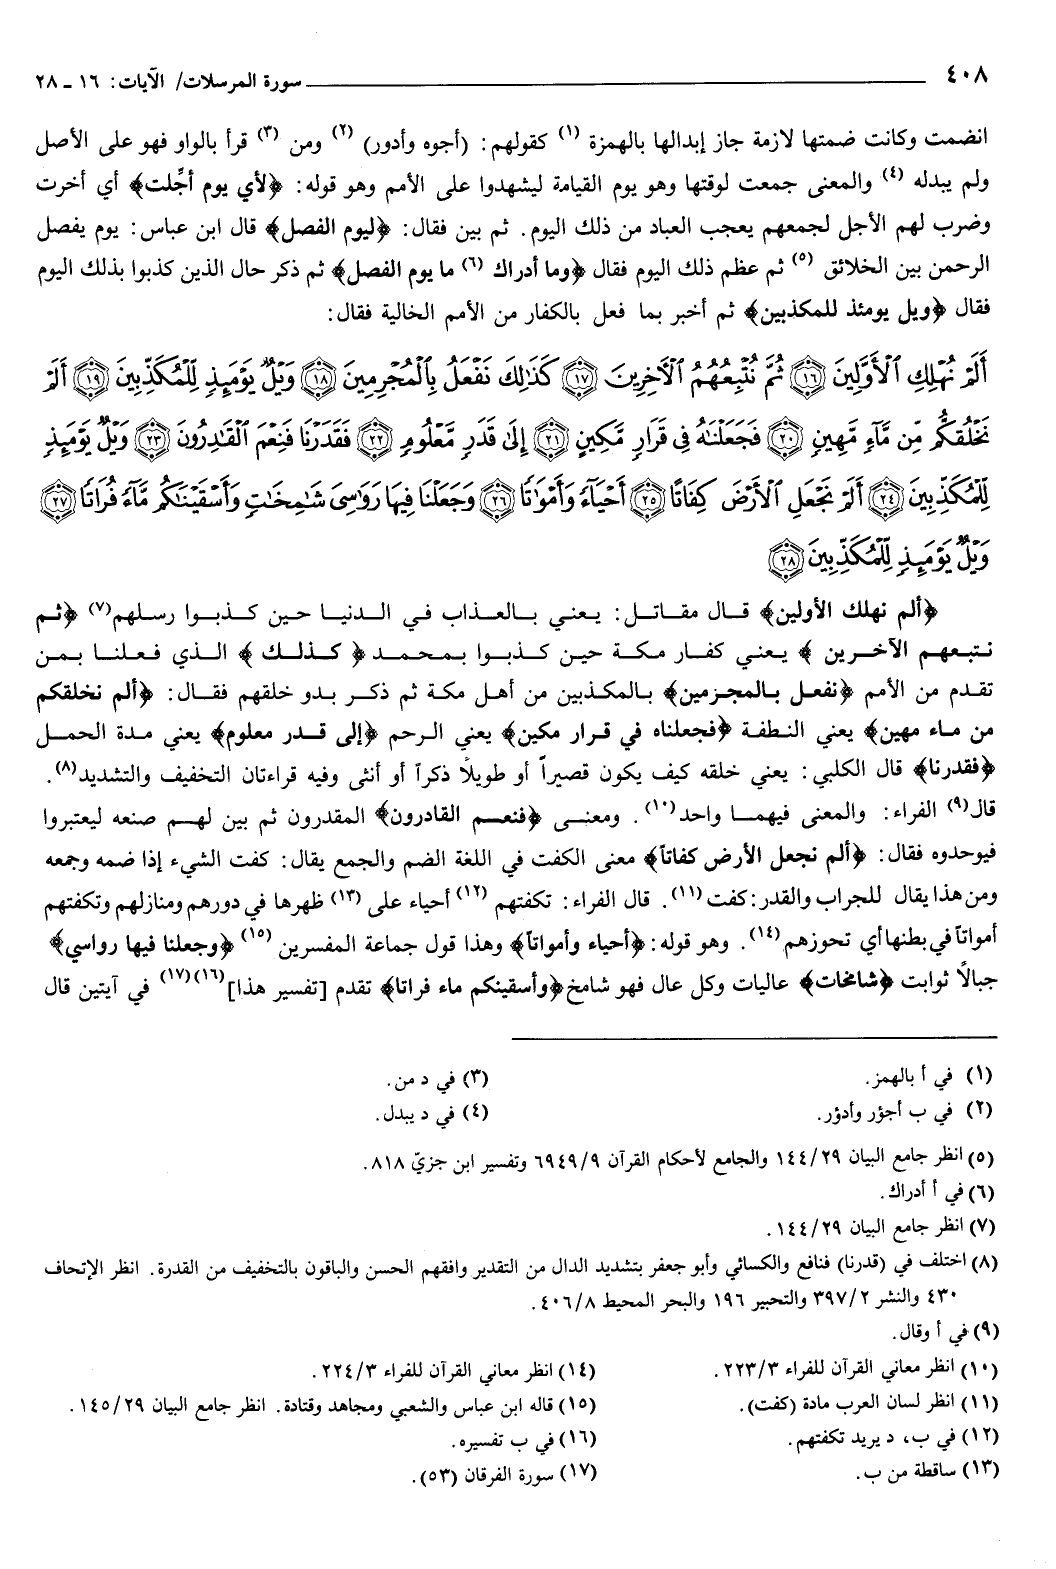 ٤٠٨ سورة المرسلات/ الآيات: ١٦ ـ ٢٨
انضمت وكانت ضمتها لازمة جاز إبدالها بالهمزة (١) كقولهم: (أجوه وأدور) (٢) ومن (٣) قرأ بالواو فهو على الأصل
ولم يبدله (٤) والمعنى جمعت لوقتها وهو يوم القيامة ليشهدوا على الأمم وهو قوله: ﴿لأي يوم أجِّلت﴾ أي أخرت
وضرب لهم الأجل لجمعهم يعجب العباد من ذلك اليوم. ثم بين فقال: ﴿ليوم الفصل﴾ قال ابن عباس: يوم يفصل
الرحمن بين الخلائق (٥) ثم عظم ذلك اليوم فقال ﴿وما أدراك (٦) ما يوم الفصل﴾ ثم ذكر حال الذين كذبوا بذلك اليوم
فقال ﴿ويل يومئذ للمكذبين﴾ ثم أخبر بما فعل بالكفار من الأمم الخالية فقال:
أَلَمْ نُهْلِكِ ٱلْأَوَّلِينَ ١٦ ثُمَّ نُتْبِعُهُمُ ٱلْآخِرِينَ ١٧ كَذَٰلِكَ نَفْعَلُ بِٱلْمُجْرِمِينَ ١٨ وَيْلٌ يَوْمَئِذٍ لِّلْمُكَذِّبِينَ ١٩ أَلَمْ
نَخْلُقكُّم مِّن مَّآءٍ مَّهِينٍ ٢٠ فَجَعَلْنَٰهُ فِى قَرَارٍ مَّكِينٍ ٢١ إِلَىٰ قَدَرٍ مَّعْلُومٍ ٢٢ فَقَدَرْنَا فَنِعْمَ ٱلْقَٰدِرُونَ ٢٣ وَيْلٌ يَوْمَئِذٍ
لِّلْمُكَذِّبِينَ ٢٤ أَلَمْ نَجْعَلِ ٱلْأَرْضَ كِفَاتًا ٢٥ أَحْيَآءً وَأَمْوَٰتًا ٢٦ وَجَعَلْنَا فِيهَا رَوَٰسِىَ شَٰمِخَٰتٍ وَأَسْقَيْنَٰكُم مَّآءً فُرَاتًا ٢٧
وَيْلٌ يَوْمَئِذٍ لِّلْمُكَذِّبِينَ ٢٨
﴿ألم نهلك الأولين﴾ قال مقاتل: يعني بالعذاب في الدنيا حين كذبوا رسلهم(٧) ﴿ثم
نتبعهم الآخرين﴾ يعني كفار مكة حين كذبوا بمحمد ﴿كذلك﴾ الذي فعلنا بمن
تقدم من الأمم ﴿نفعل بالمجرمين﴾ بالمكذبين من أهل مكة ثم ذكر بدو خلقهم فقال: ﴿ألم نخلقكم
من ماء مهين﴾ يعني النطفة ﴿فجعلناه في قرار مكين﴾ يعني الرحم ﴿إلى قدر معلوم﴾ يعني مدة الحمل
﴿فقدرنا﴾ قال الكلبي: يعني خلقه كيف يكون قصيراً أو طويلاً ذكراً أو أنثى وفيه قراءتان التخفيف والتشديد(٨).
قال(٩) الفراء: والمعنى فيهما واحد(١٠). ومعنى ﴿فنعم القادرون﴾ المقدرون ثم بين لهم صنعه ليعتبروا
فيوحدوه فقال: ﴿ألم نجعل الأرض كفاتاً﴾ معنى الكفت في اللغة الضم والجمع يقال: كفت الشيء إذا ضمه وجمعه
ومن هذا يقال للجراب والقدر: كفت(١١). قال الفراء: تكفتهم (١٢) أحياء على (١٣) ظهرها في دورهم ومنازلهم وتكفتهم
أمواتاً في بطنها أي تحوزهم(١٤). وهو قوله: ﴿أحياء وأمواتاً﴾ وهذا قول جماعة المفسرين (١٥) ﴿وجعلنا فيها رواسي﴾
جبالاً ثوابت ﴿شامخات﴾ عاليات وكل عال فهو شامخ ﴿وأسقينكم ماء فراتا﴾ تقدم [تفسير هذا](١٦)(١٧) في آيتين قال
(١) في أ بالهمز. (٣) في د من.
(٢) في ب أجؤر وأدؤر. (٤) في د يبدل.
(٥) انظر جامع البيان ١٤٤/٢٩ والجامع لأحكام القرآن ٦٩٤٩/٩ وتفسير ابن جزيّ ٨١٨.
(٦) في أ أدراك.
(٧) انظر جامع البيان ١٤٤/٢٩.
(٨) اختلف في (قدرنا) فنافع والكسائي وأبو جعفر بتشديد الدال من التقدير وافقهم الحسن والباقون بالتخفيف من القدرة. انظر الإتحاف
٤٣٠ والنشر ٣٩٧/٢ والتحبير ١٩٦ والبحر المحيط ٤٠٦/٨.
(٩) في أ وقال.
(١٠) انظر معاني القرآن للفراء ٢٢٣/٣. (١٤) انظر معاني القرآن للفراء ٢٢٤/٣.
(١١) انظر لسان العرب مادة (كفت). (١٥) قاله ابن عباس والشعبي ومجاهد وقتادة. انظر جامع البيان ١٤٥/٢٩.
(١٢) في ب، د يريد تكفتهم. (١٦) في ب تفسيره.
(١٣) ساقطة من ب. (١٧) سورة الفرقان (٥٣).